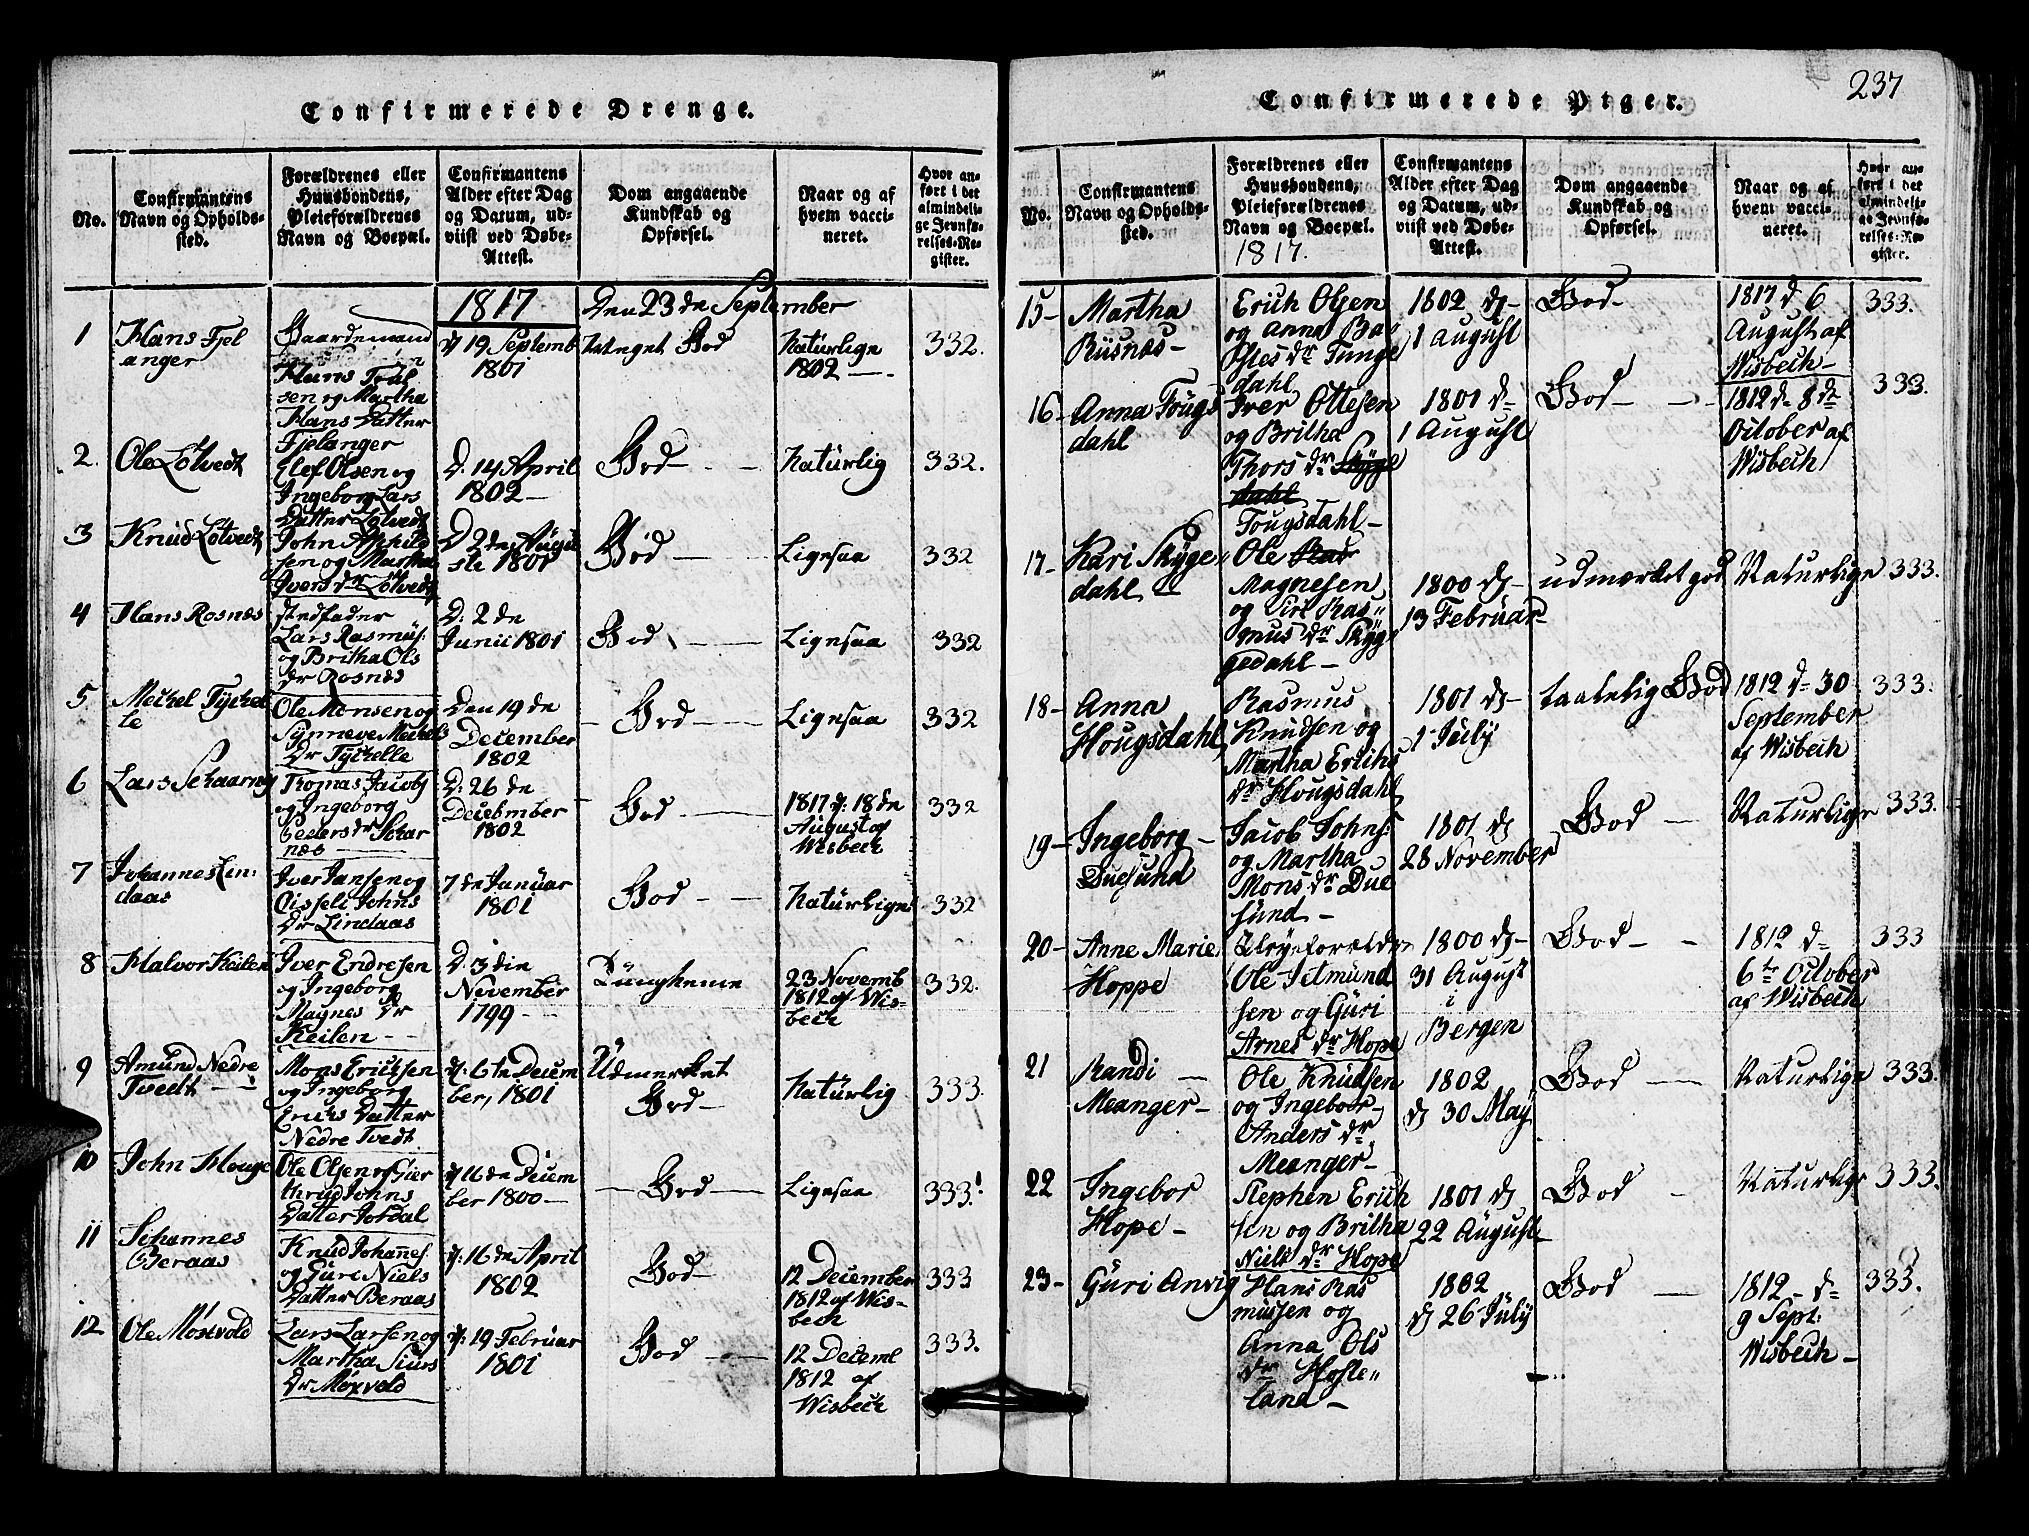 Confirmerede Drenge.
No.
Confirmantens
Navn og Opholds-
sted.
Forældrenes eller
Huusbondens,
Pleieforældrenes
Navn og Boepæl.
Confirmantens
Alder efter Dag
og Datum, ud-
viist ved Døbe-
Attest.
Dom angaaende
Kundskab og
Opførsel.
Naar og af
hvem vacci-
neret.
Hvor an-
ført i det
almindeli-
ge Jevnfø-
relses-Re-
gister.
1817
Den 23de September
1
Hans Fjel
anger
Gaardemand
Hans Trul
sen og Martha
Hans Datter
Fjelanger
19 Septemb
1801
meget God
Natürlige
1802 —.
332.
2
Ole Lötvedt
Elef Olsen og
Ingeborg Lars
Datter Lötvedt
D. 14 April
1802 —
God
Natürlig
332.
3
Knud Lötvedt
John
sen og Martha
Ivers dr Lötvedt
D 2de Augu
ste 1801
God
Ligesaa
332
4
Hans Rosnes
Stedfader
Lars Rasmüs:
og Britha Ols
Dr Rosnes
D: 2de
Junii 1801
God
Ligesaa
332
5
Mickel Tyckel
le
Ole Monsen og
Synneve Mickels
Dr Tyckelle
Den 19de
December
1802
God
Ligesaa
332
6
Lars Skaarnes
Thomas Jacobs
og Ingeborg
Peders dr Skar
næs
D: 26de
December
1802
God
1817 d: 18de
August af
Wisbech
332
7
Johannes Lin:
daas
Iver Jansen og
Cisseli Johns
Dr Lindaas
7de Januar
1801
God
Natürlige
332
8
Halvor Keilen
Iver Endresen
og Ingeborg
Magnes Dr
Keilen
D: 3die
November
1799
23 Novemb
1812 af Wis-
bech
332.
9
Amund Nedre
Tvedt
Mons Ericksen
og Ingeborg
Ericks Datter
Nedre Tvedt
6te Decem
ber, 1801
Udmerket
God
Natürlig
333.
10
John Houge
Ole Olsen og Gier
thrud Johns
Datter Jordal
16de Decem
ber 1800
God
Ligesaa
333.
11
Johannes
Beraas
Knud Johanes
og Güri Niels
Datter Beraas
16de April
1802
God
12 December
1812 af Wis-
bech
333
12
Ole Moxvold
Lars Larsen og
Martha Siürs
Dr Moxvold
19 Februar
1801
God
12 Decemb
1812 af
Wisbech
333.
Confirmerede Piger.
237
No.
Confirmantens
Navn og Opholds-
sted.
Forældrenes eller
Huusbondens,
Pleieforældrenes
Navn og Boepæl.
1817.
Confirmantens
Alder efter Dag
og Datum, ud-
viist ved Døbe-
Attest.
Dom angaaende
Kundskab og
Opførsel.
Naar og af
hvem vacci-
neret.
Hvor an-
ført i det
almindeli-
ge Jevnfø-
relses-Re-
gister.
15
Martha
Risnæs
Erich Olsen
og Anna Ba
stes dr Tunge
dahl
1802 d
1 August
God
1817 d 6
August af
Wisbech
333.
16
Anna Tougs
dahl
Iver Ottesen
og Britha
Thors dr Skyge
dahl
Tougsdahl
1801 d
1 August
God
1812 d 8de
October af
Wisbech
333.
17
Kari Skyge
dahl
Ole
Magnesen
og Siri Ras
mus dr Skyg
gedahl
1800 d
13 Februar
udmærket god
Naturlige
333.
18
Anna
Hougsdahl
Rasmus
Knudsen og
Martha Erichs
dr Hougsdahl
1801 d
1 July
taalelig God
1812 d 30
September
af Wisbech
333.
19
Ingeborg
Duesund
Jacob Johns:
og Martha
Mons dr Due
sund
1801 d
28 November
God
Naturlige
333.
20
Anne Marie
Hoppe
Pleyeforeldr
Ole Setmünd
sen og Güri
Arnes dr Hope
1800 d
31 August
i
Bergen
God
1812 d
6te October
af Wisbech
333
21
Randi
Meanger
Ole Knudsen
og Ingeborr
Anders dr
Meanger
1802
d 30 May
God
Naturlige
333.
22
Ingebor
Hope
Stephen Erich
sen og Britha
Niels dr Hope
1801 d
22 August
God
Naturlige
333.
23
Güri Anvig
Hans Ras
mussen og
Anna Ols
dr Hosle
land
1802
d 26 July
God
1812 d
9 Sept:
Wisbech
333.